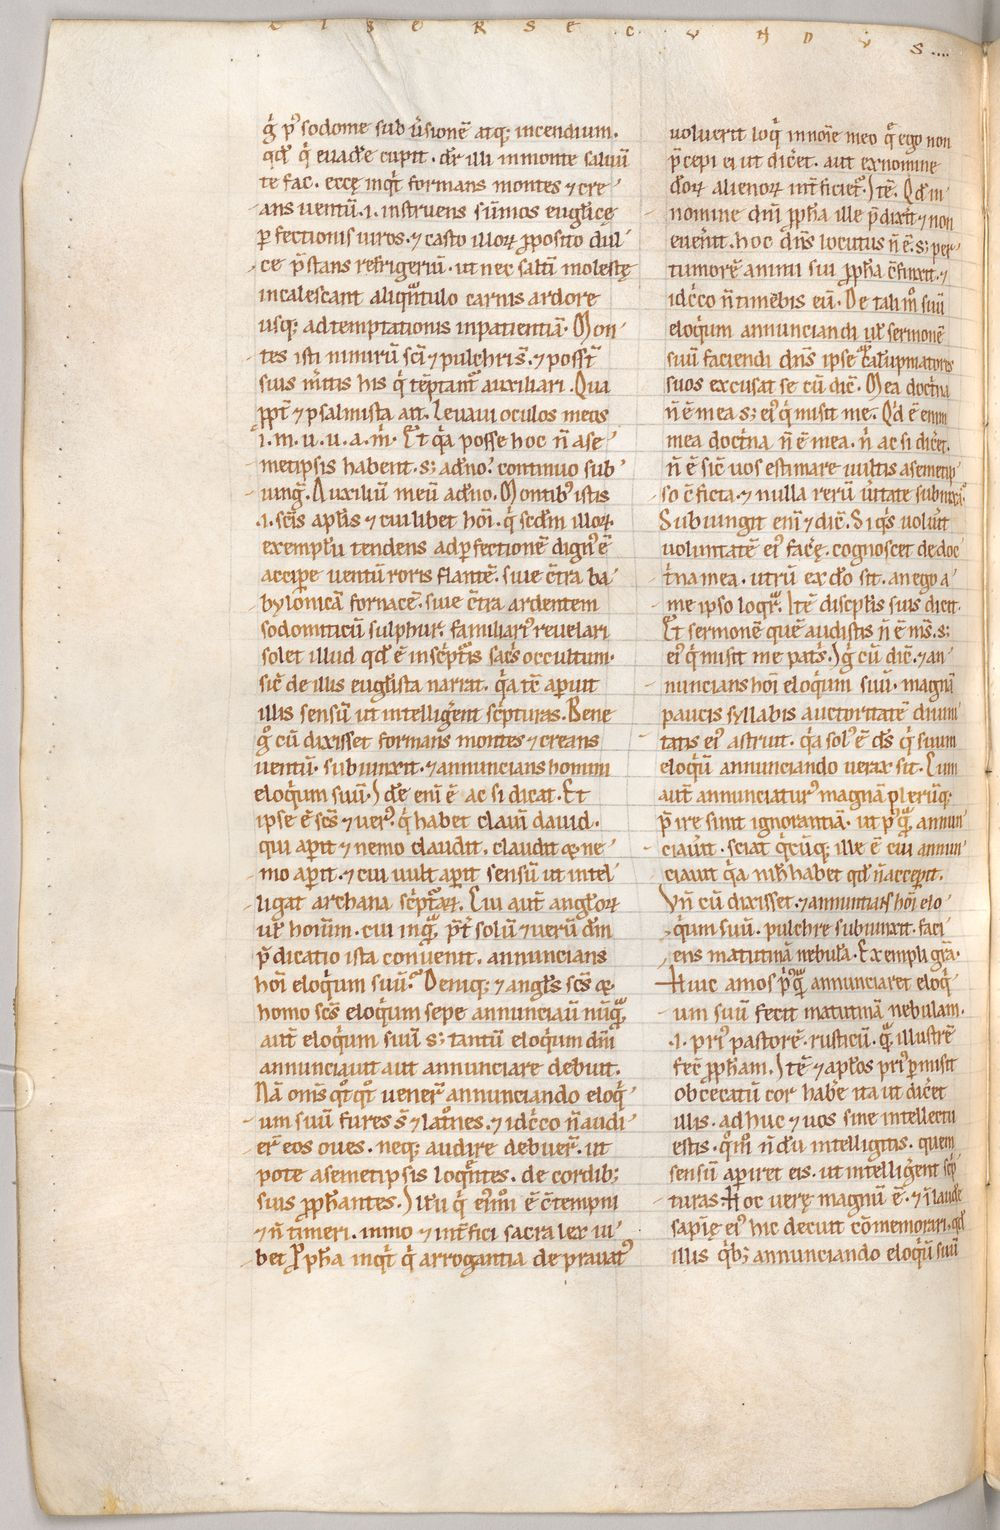 LIBER SECUNDUS....
g̾ p᷒ sodome sub ūsionē atq; incendium.
qd̄ q̇ euad̄e cupit. dr̄ illi in monte saluū
te fac. eccę inq̄t formans montes ⁊ cre
ans uentū. .i. instruens sūmos eug̃licę
ꝑfectionis uiros. ⁊ casto illoꝝ ꝓposito dul
ce p̄stans refrigeriū. ut nec saltī molestę
incalescant aliqᵃntulo carnis ardore
usq; ad temptationis inpatientiā. Mon
tes isti nimirū sc̄i ⁊ pulchri s̄. ⁊ poss̄t
suis m̄itis his q̇ tēptantᷣ auxiliari. Qua
ꝓpt̄ ⁊ psalmista ait. Leuaui oculos meos
i. m. u. u. a. m̄. Et q̇a posse hoc n̄ a se
metipsis habent. s; a dn̄o. continuo sub
iung̃. Auxiliū meū a dn̄o. Montib᷒ istis
.i. sc̄is apl̄is ⁊ cuilibet hōi. q̇ scdm̄ illoꝝ
exemplū tendens ad ꝑfectionē dign᷒ ē
accipe uentū roris flantē. siue c̄tra ba
bylonicā fornacē. siue c̄tra ardentem
sodomiticū sulphur. familiari᷒ reuelari
solet illud qd̄ ē in sc̄ptᵃis sac̄s occultum.
sic̄ de illis eug̃lista narrat. q̇a tē aperuit
illis sensū ut intellig̃ent sc̄pturas. Bene
g̊ cū dixisset formans montes ⁊ creans
uentū. subiunxit. ⁊ annuncians homini
eloq̇um suū. Id̄e enī ē ac si dicat. Et
ipse ē sc̄s ⁊ uer᷒. q̇ habet clauī dauid.
qui aꝑit ⁊ nemo claudit. claudit ⁊ ne
mo aꝑit. ⁊ cui uult aꝑit sensū ut intel
ligat archana sc̄ptᵃꝝ. Cui aut̄ ang̃loꝝ
ul̄ hoīum. cui inqᵃ. p̄t̄ solū ⁊ uerū dm̄
p̄dicatio ista conuenit. annuncians
hōi eloq̇um suū. Deniq; ⁊ ang̃ls sc̄s ⁊
homo sc̄s eloq̇um sepe annunciauit nūqᵃ
aut̄ eloq̇um suū s; tantū eloq̇um dn̄i
annunciauit aut annunciare debuit.
Nā om̄s qᵒtqᵒt uener̄ annunciando eloq̇
um suū fures s̄ ⁊ latᵒnes. ⁊ idc̄co n̄ audi
er̄ eos oues. neq; audire debuer̄. ut
pote a semetipsis loqᵃntes. de cordib;
suis ꝓph̄antes. Ita q̇ ē c̄tempni
⁊ n̄ timeri. immo ⁊ int̄fici sacra lex iu
bet. Ꝓph̄a inq̄t q̇ arrogantia deprauat᷒
uoluerit loq̇ in noīe meo qᵉ ego non
p̄cepi ei ut dic̄et. aut ex nomine
d̄oꝝ alienoꝝ int̄ficietᷣ. Itē. Qd̄ in
nomine dn̄i ꝓph̄a ille p̄dixit ⁊ non
euen̄it. hoc dn̄s locutus n̄ ē. s; per
tumorē animi sui ꝓph̄a c̄finxit. ⁊
idc̄co n̄ timebis eū. De tali mᵒ suū
eloq̇um annunciandi ul̄ sermonē
suū faciendi dn̄s ipse calūpniatores
suos excusat se cū dic̄. Mea doct̄na
n̄ ē mea s; ei᷒ q̇ misit me. Qd̄ ē enim
mea doct̄na n̄ ē mea. n̄ ac si dic̄et.
n̄ ē sic̄ uos estimare uultis a semetip
so c̄ficta. ⁊ nulla rerū ūitate subnixa.
Subiungit enī ⁊ dic̄. Si q̇s uolūit
voluntatē ei᷒ facē. cognoscet de doc
t̄na mea. utrū ex d̄o sit. an ego a
me ipso loqᵃr. Itē discip̄lis suis dicit.
Et sermonē quē audistis n̄ ē ms̄. s;
ei᷒ q̇ misit me pat̄s. Ig̃ cū dic̄. ⁊ an
nuncians hōi eloq̇um suū. magnā
paucis syllabis auctoritatē diuini
tatis ei᷒ astruit. q̇a sol᷒ ē d̄s q̇ suum
eloq̇ū annunciando uerax sit. Cum
aut̄ annunciatur᷒ magnā pleruq;
p̄ire sinit ignorantiā. ut pᵒqᵃ annun
ciaūit. sciat q̇cūq; ille ē cui annun
ciauit q̇a nih̄ habet qd̄ n̄ accepit.
Vn̄ cū dixisset. ⁊ annuntians hōi elo
q̇um suū. pulchre subiunxit. faci
ens matutinā nebulā. Exempli gr̄a.
Huic amos p᷒qᵃ annunciaret eloq̇
um suū fecit matutinā nebulam.
.i. pri᷒ pastorē. rusticū. qᵃ illustrē
fec̄ ꝓph̄am. Itē ⁊ apl̄os pri᷒ ꝑmisit
obcecatū cor hab̄e ita ut dic̄et
illis. adhuc ⁊ uos sine intellectu
estis. qᵒm n̄dū intelligitis. quem
sensū aꝑiret eis. ut intellig̃ent sc̄p
turas. Hoc uerę magnū ē. ⁊ n̄ laude
sapīę ei᷒ hic decuit cōmemorari. qd̄
illis q̇b; annunciando eloq̇ū suū